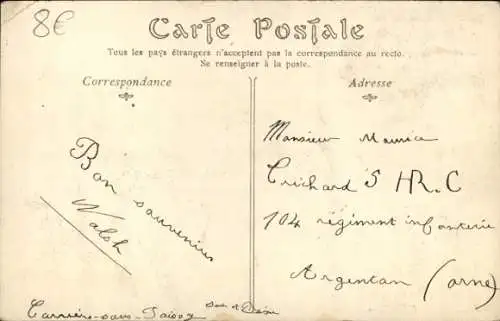 8€
Carte Postale
Tous les pays étrangers n'acceptent pas la correspondance au recto.
Se renseigner à la poste.
Correspondance
Adresse
Bon souvenir
Walsh
Monsieur Maurice
Crichard S H R. C
104 régiment infanterie
Argentan (orne)
Carrière-sous-Poissy